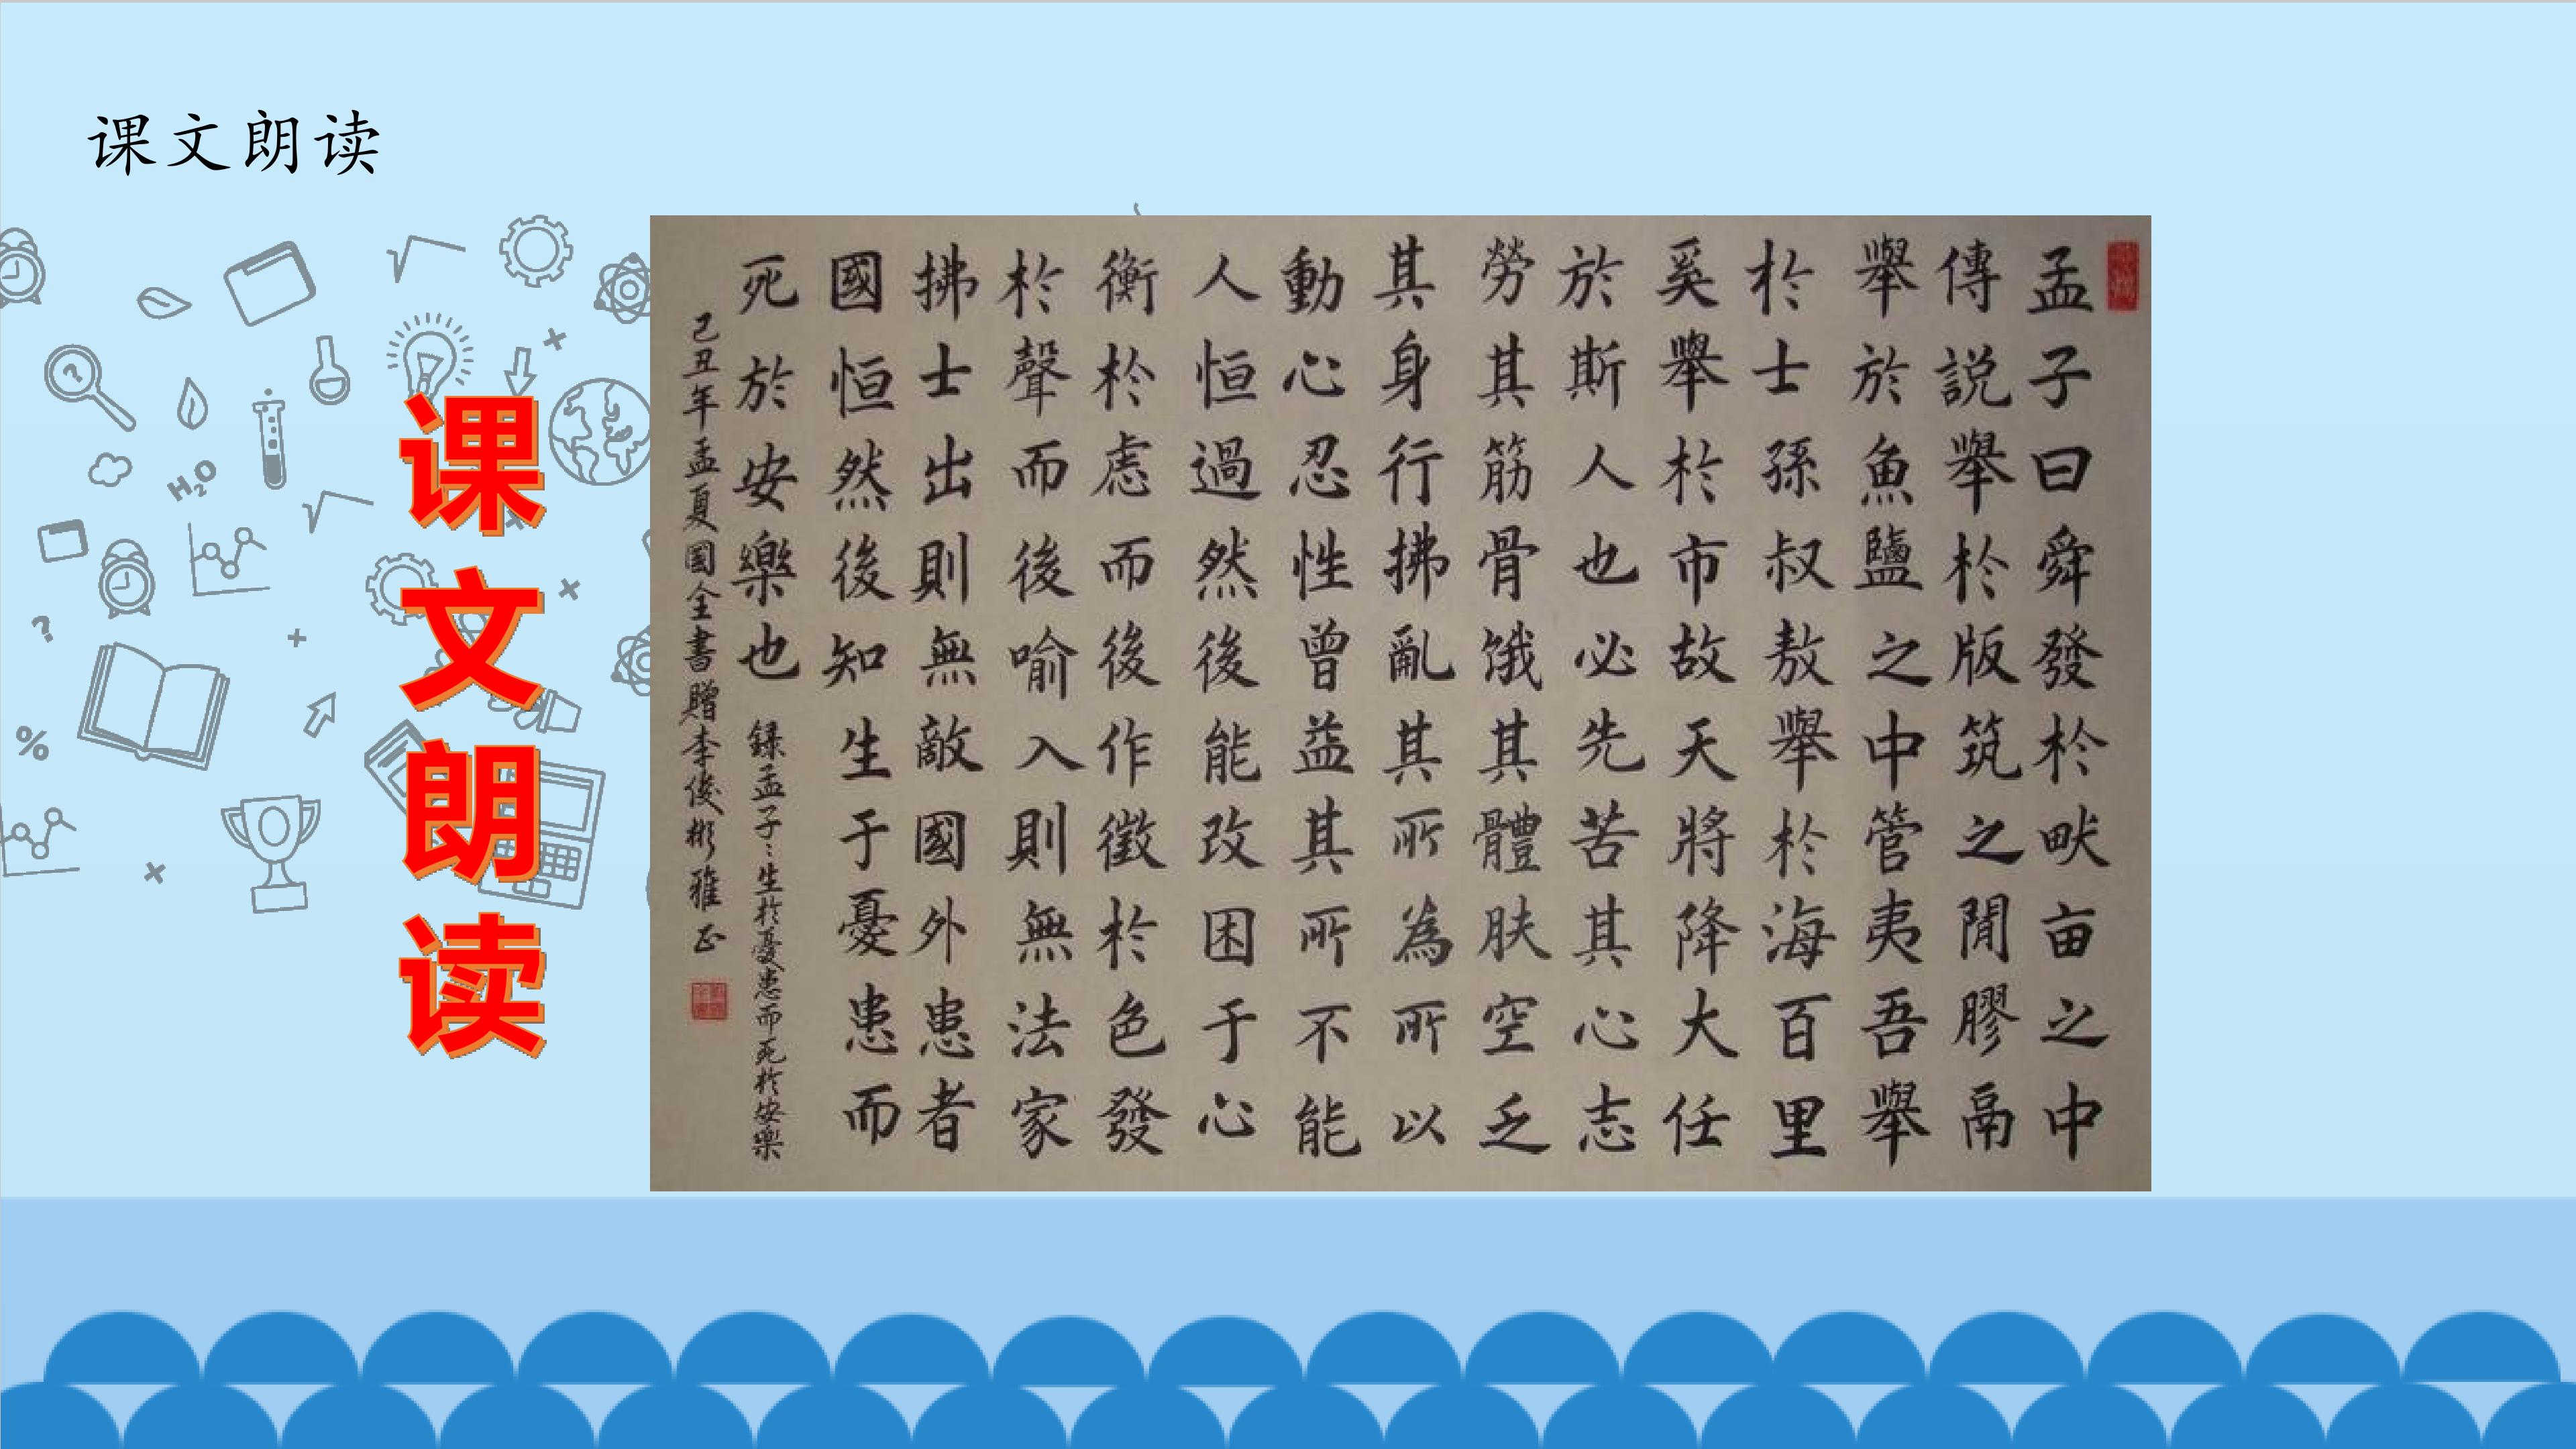 课文朗读
课文朗读
孟子曰舜發於畎亩之中
傳説舉於版筑之間膠鬲
舉於魚鹽之中管夷吾舉
於士孫叔敖舉於海百里
奚舉於市故天將降大任
於斯人也必先苦其心志
勞其筋骨饿其體肤空乏
其身行拂亂其所為所以
動心忍性曾益其所不能
人恒過然後能改困于心
衡於慮而後作徵於色發
於聲而後喻入則無法家
拂士出則無敵國外患者
國恒然後知生于憂患而
死於安樂也 録孟子:生於憂患而死於安樂
己丑年孟夏国全書贈李俊彬雅正